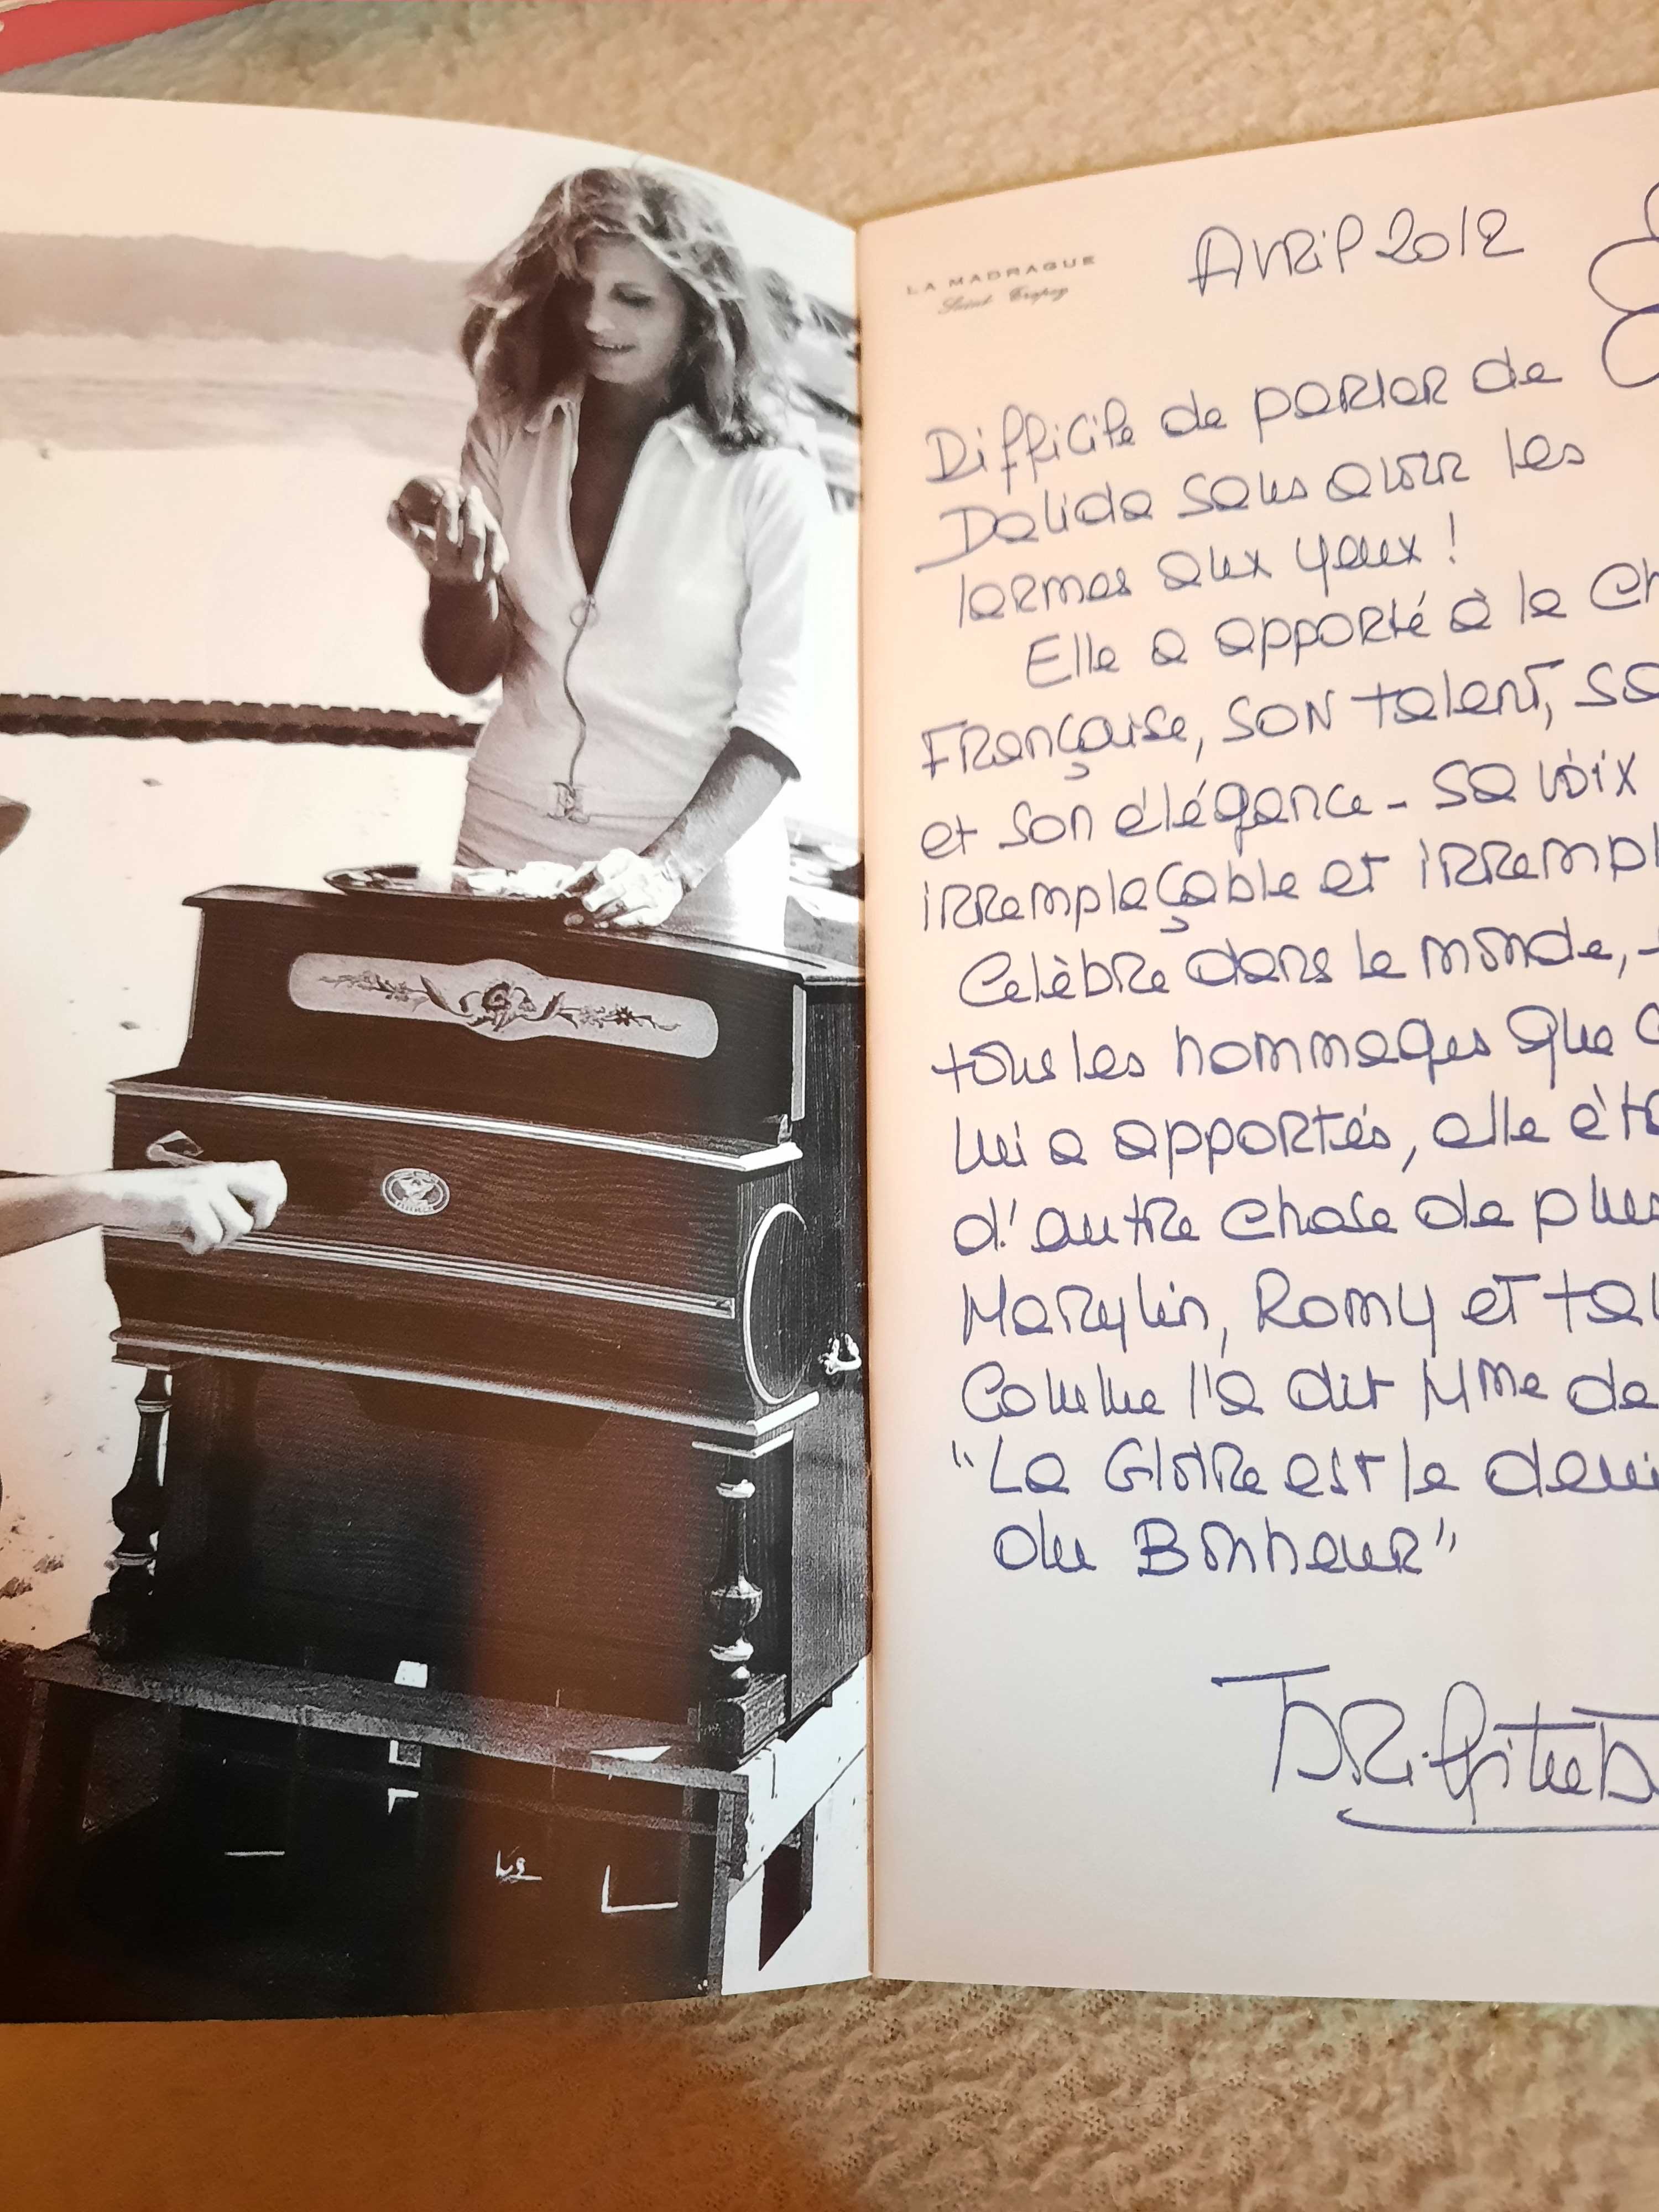 LA MADRAGUE
Saint Tropez
Avril 2012
Difficile de parler de
Dalida sans avoir les
larmes aux yeux !
Elle a apporté à la Ch
Française, son talent, sa
et son élégance - sa voix
irremplaçable et irrempl
Celèbre dans le monde,
tous les hommages que
lui a apportés, elle éta
d'autre chose de plus
Marylin, Romy et tal
Comme l'a dit Mme de
"La Gloire est le deui
du Bonheur"